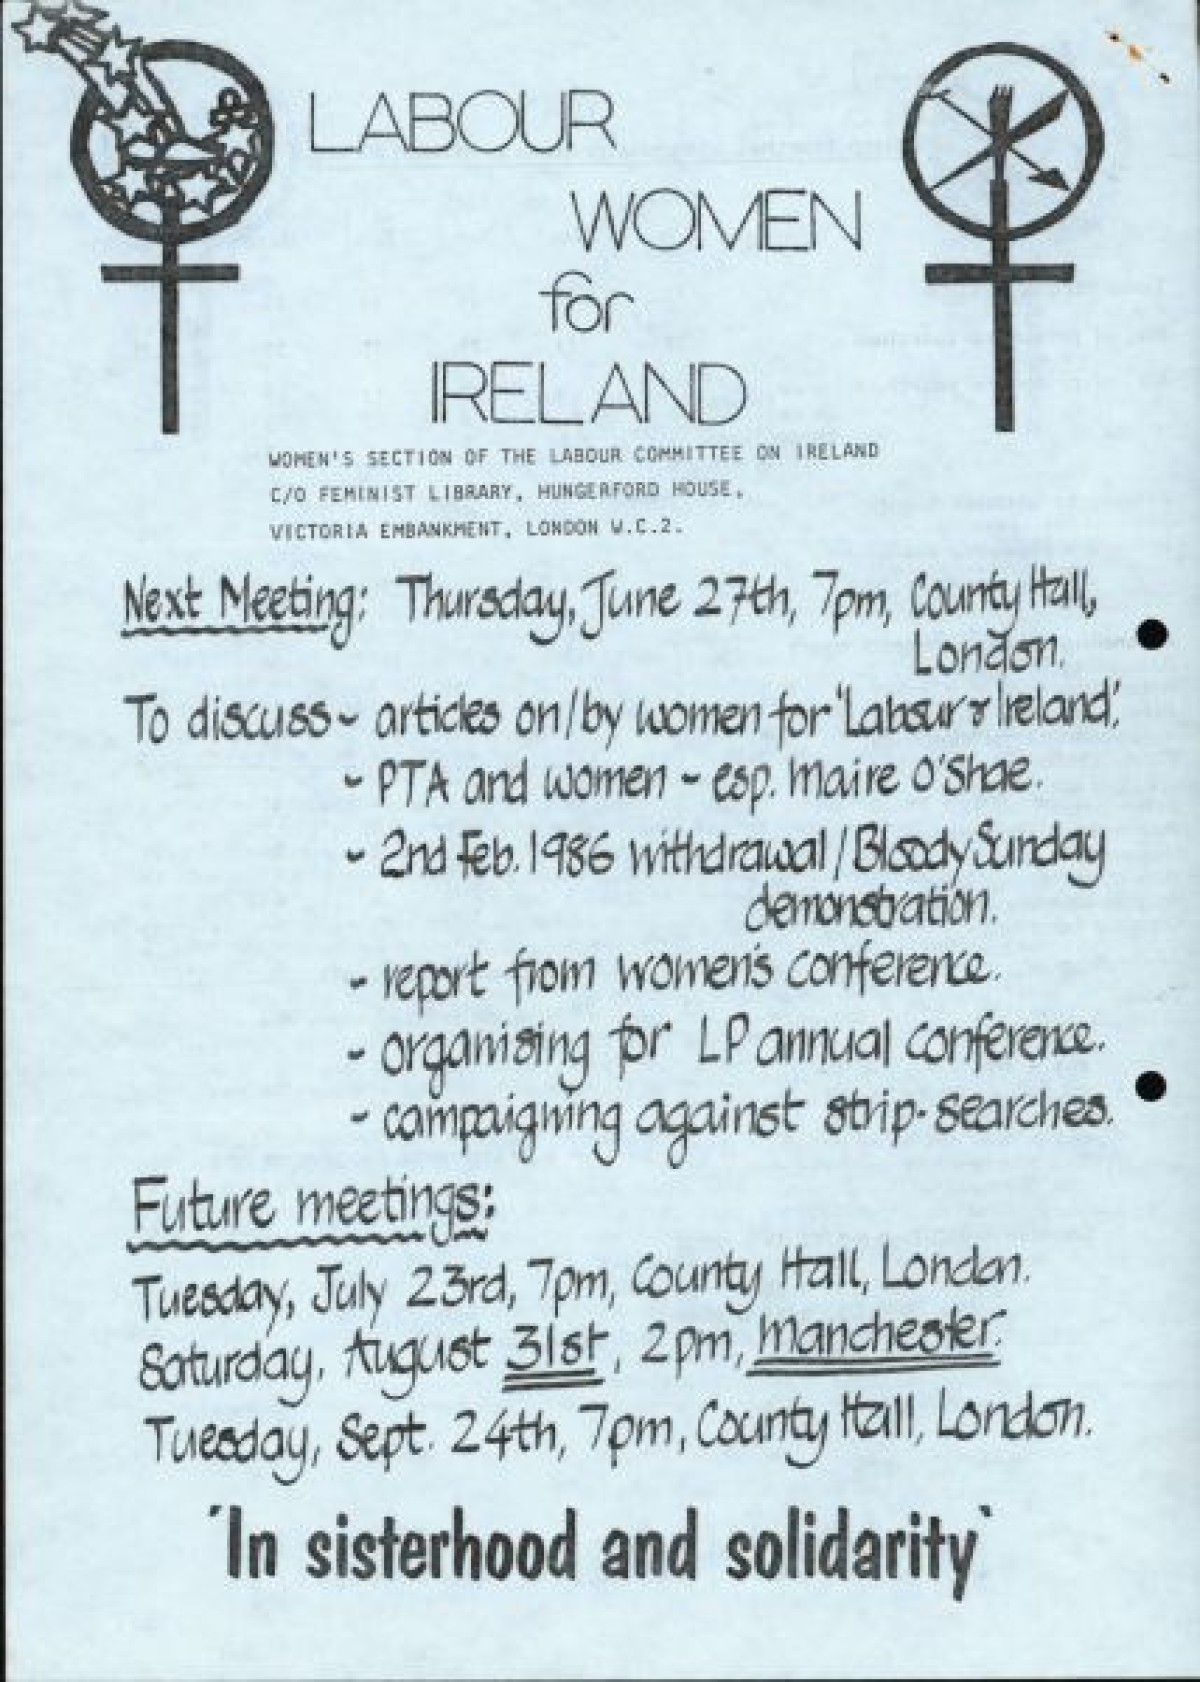 LABOUR
WOMEN
for
IRELAND
WOMEN'S SECTION OF THE LABOUR COMMITTEE ON IRELAND
C/O FEMINIST LIBRARY, HUNGERFORD HOUSE,
VICTORIA EMBANKMENT, LONDON W.C.2.
Next Meeting: Thursday, June 27th, 7pm, County Hall,
London.
To discuss - articles on/by women for 'Labour & Ireland',
- PTA and women - esp. Maire O'Shae.
- 2nd Feb. 1986 withdrawal/Bloody Sunday
demonstration.
- report from women's conference.
- organising for LP annual conference.
- campaigning against strip-searches.
Future meetings:
Tuesday, July 23rd, 7pm, County Hall, London.
Saturday, August 31st, 2pm, Manchester.
Tuesday, Sept. 24th, 7pm, County Hall, London.
'In sisterhood and solidarity'